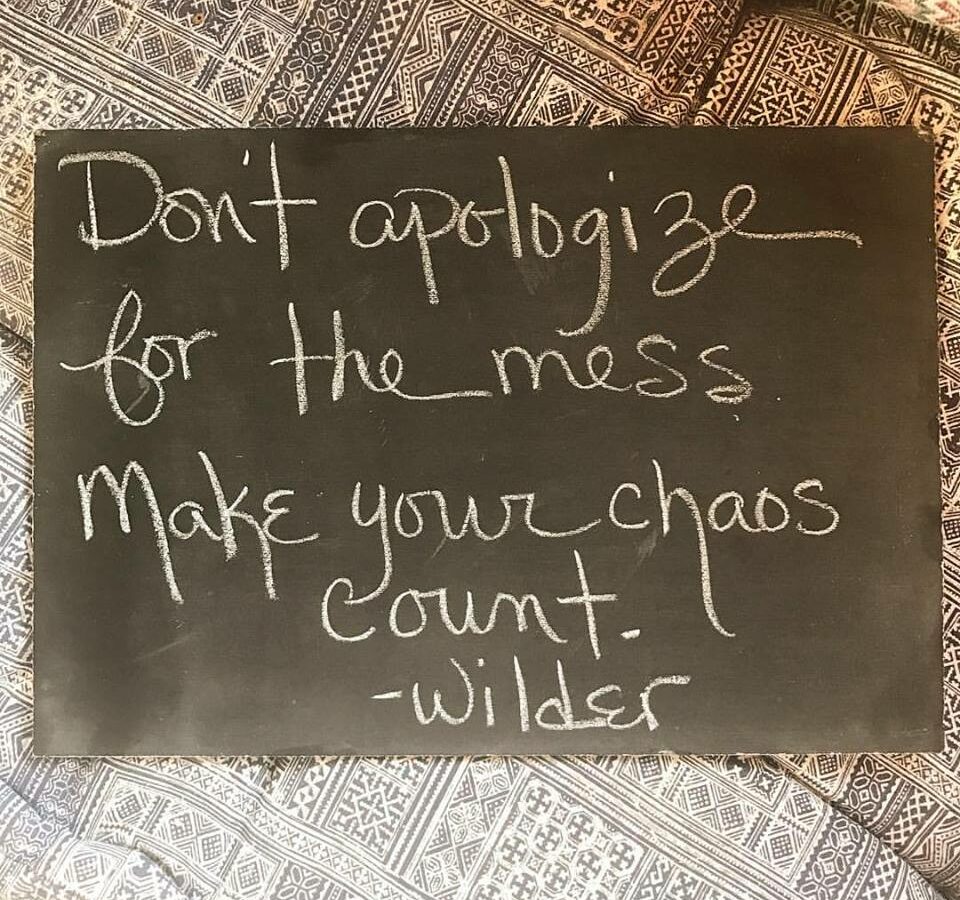 Don't apologize
for the mess
Make your chaos
count.
-Wilder